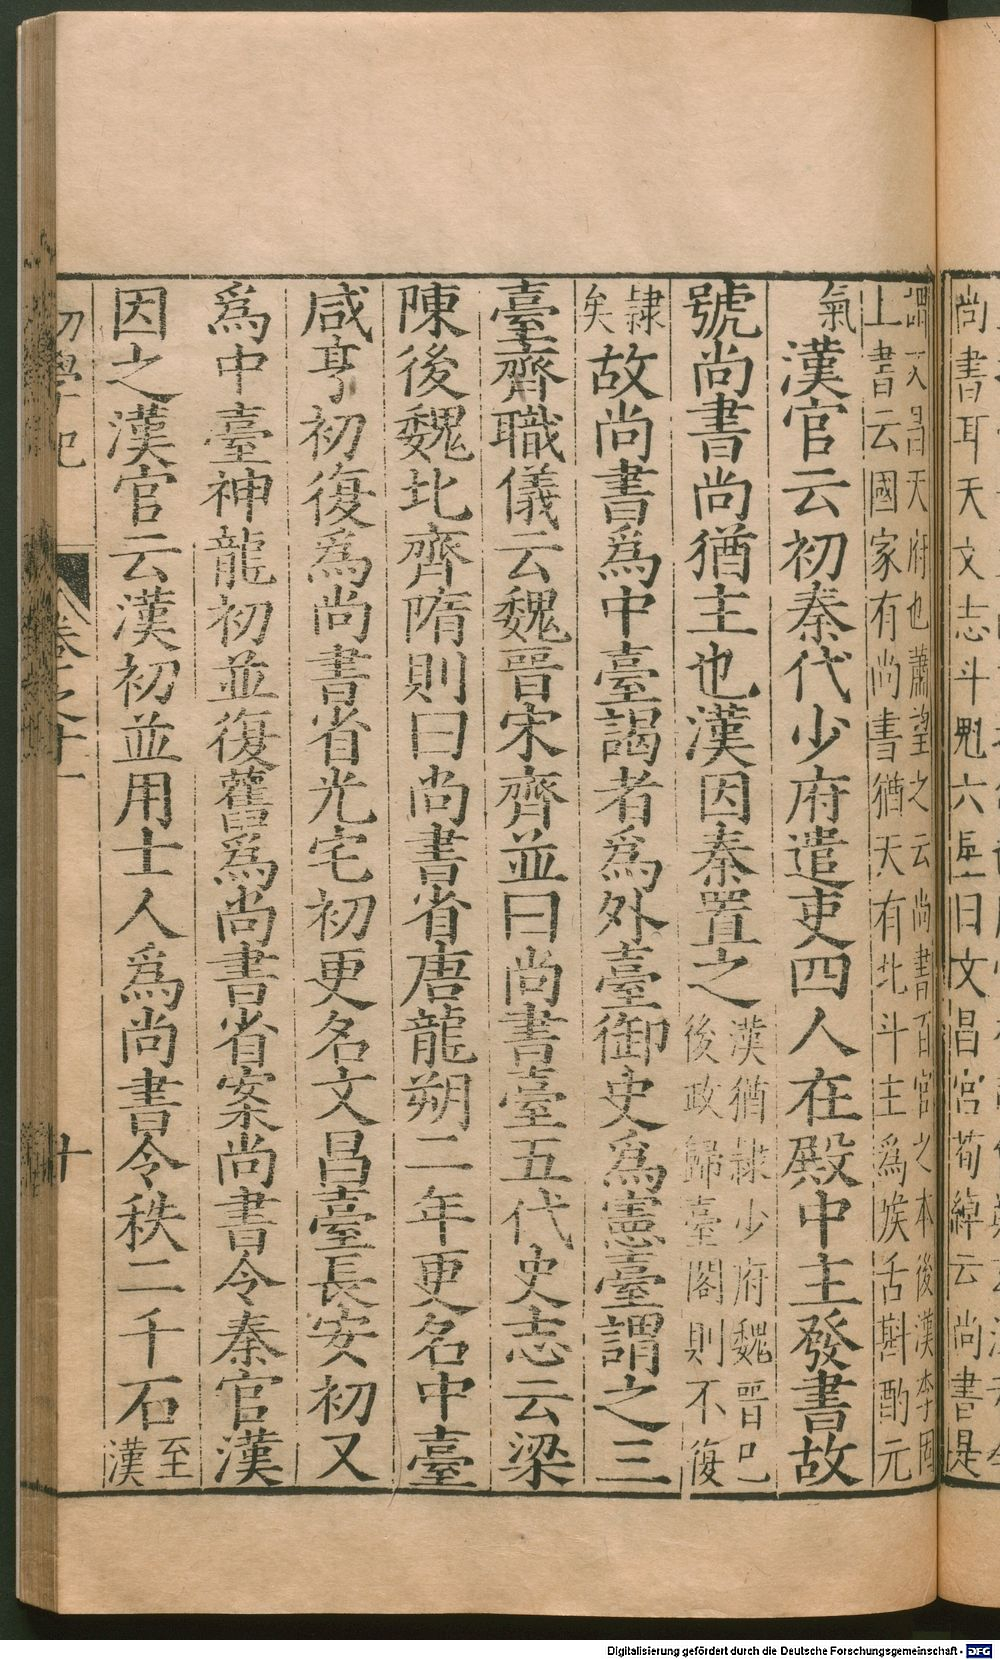 尚書耳天文志斗魁六星曰文昌宮荀綽云尚書是
謂文昌天府也蕭望之云尚書百官之本後漢李固
上書云國家有尚書猶天有北斗主爲喉舌斟酌元
氣漢官云初秦代少府遣吏四人在殿中主發書故
號尚書尚猶主也漢因秦置之漢猶隸少府魏晉已
後政歸臺閣則不復
隸
矣故尚書爲中臺謁者爲外臺御史爲憲臺謂之三
臺齊職儀云魏晉宋齊並曰尚書臺五代史志云梁
陳後魏北齊隋則曰尚書省唐龍朔二年更名中臺
咸亨初復爲尚書省光宅初更名文昌臺長安初又
爲中臺神龍初並復舊爲尚書省案尚書令秦官漢
因之漢官云漢初並用士人爲尚書令秩二千石至
漢
初學記 卷之十一 十
Digitalisierung gefördert durch die Deutsche Forschungsgemeinschaft - DFG